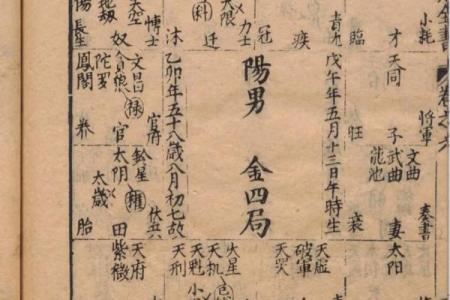 書
卷之六
小耗
才 天同
臨
將軍
文曲
子 武曲
龍池
旺
奏書
妻 太陽
衰
疾
冠
力士
天限
科
迁
沐
博士
天空
奴
地劫
陽
長生
戊午年五月十三日午時生
陽男 金四局
乙卯年五十八歲八月初七故
官府
文昌
貪狼 祿
官
陀羅
鳳閣
养
伏兵
鈴星 權
太陰
太歲
胎
天虛
破軍
天哭
火星
天機 忌
天魁 小
天刑
天府
田 紫微